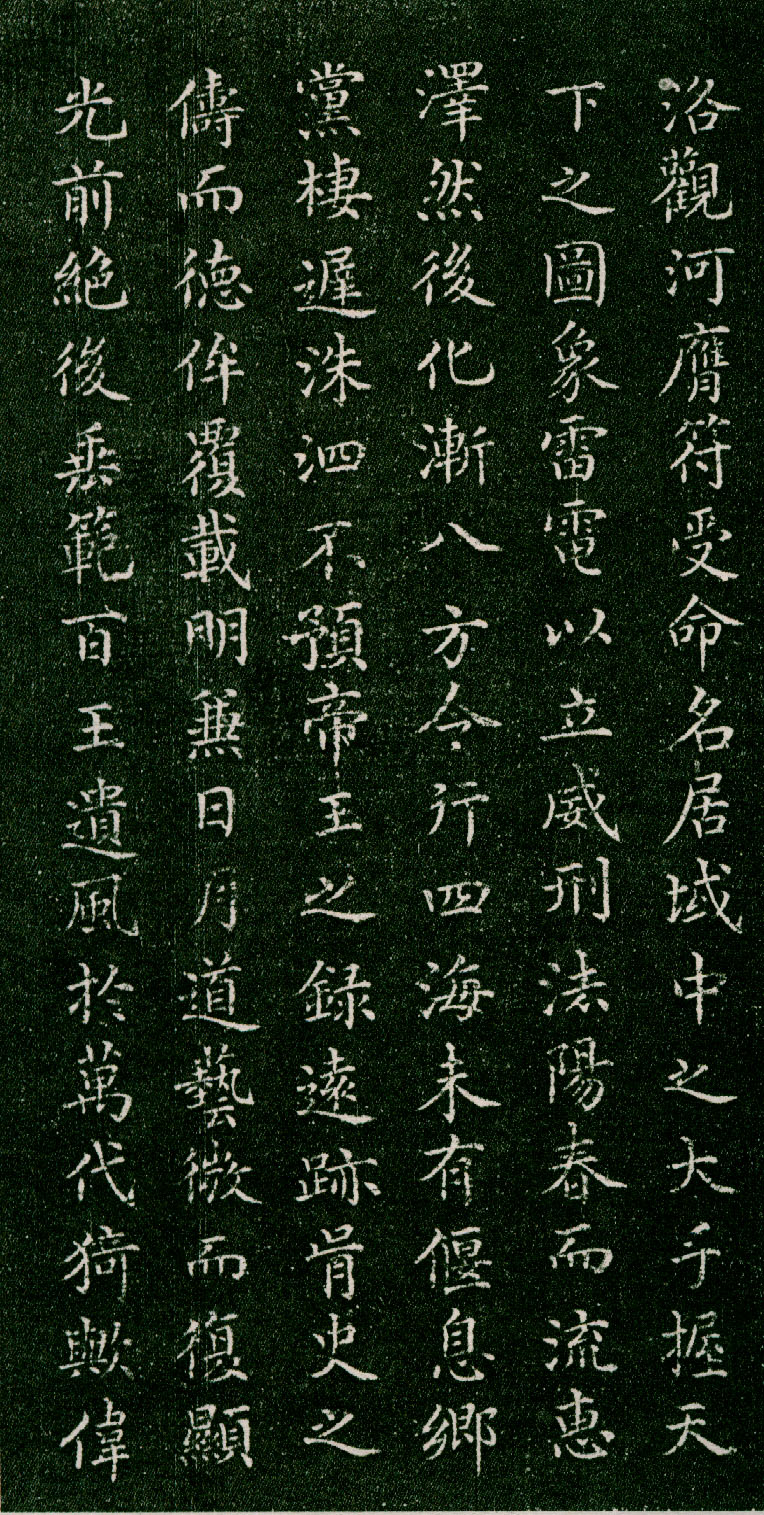 洛觀河膺符受命名居域中之大手握天
下之圖象雷電以立威刑法陽春而流惠
澤然後化漸八方令行四海未有偃息鄉
黨棲遲洙泗不預帝王之錄遠跡胥史之
儔而德侔覆載明兼日月道藝微而復顯
光前絕後垂範百王遺風於萬代猗歟偉